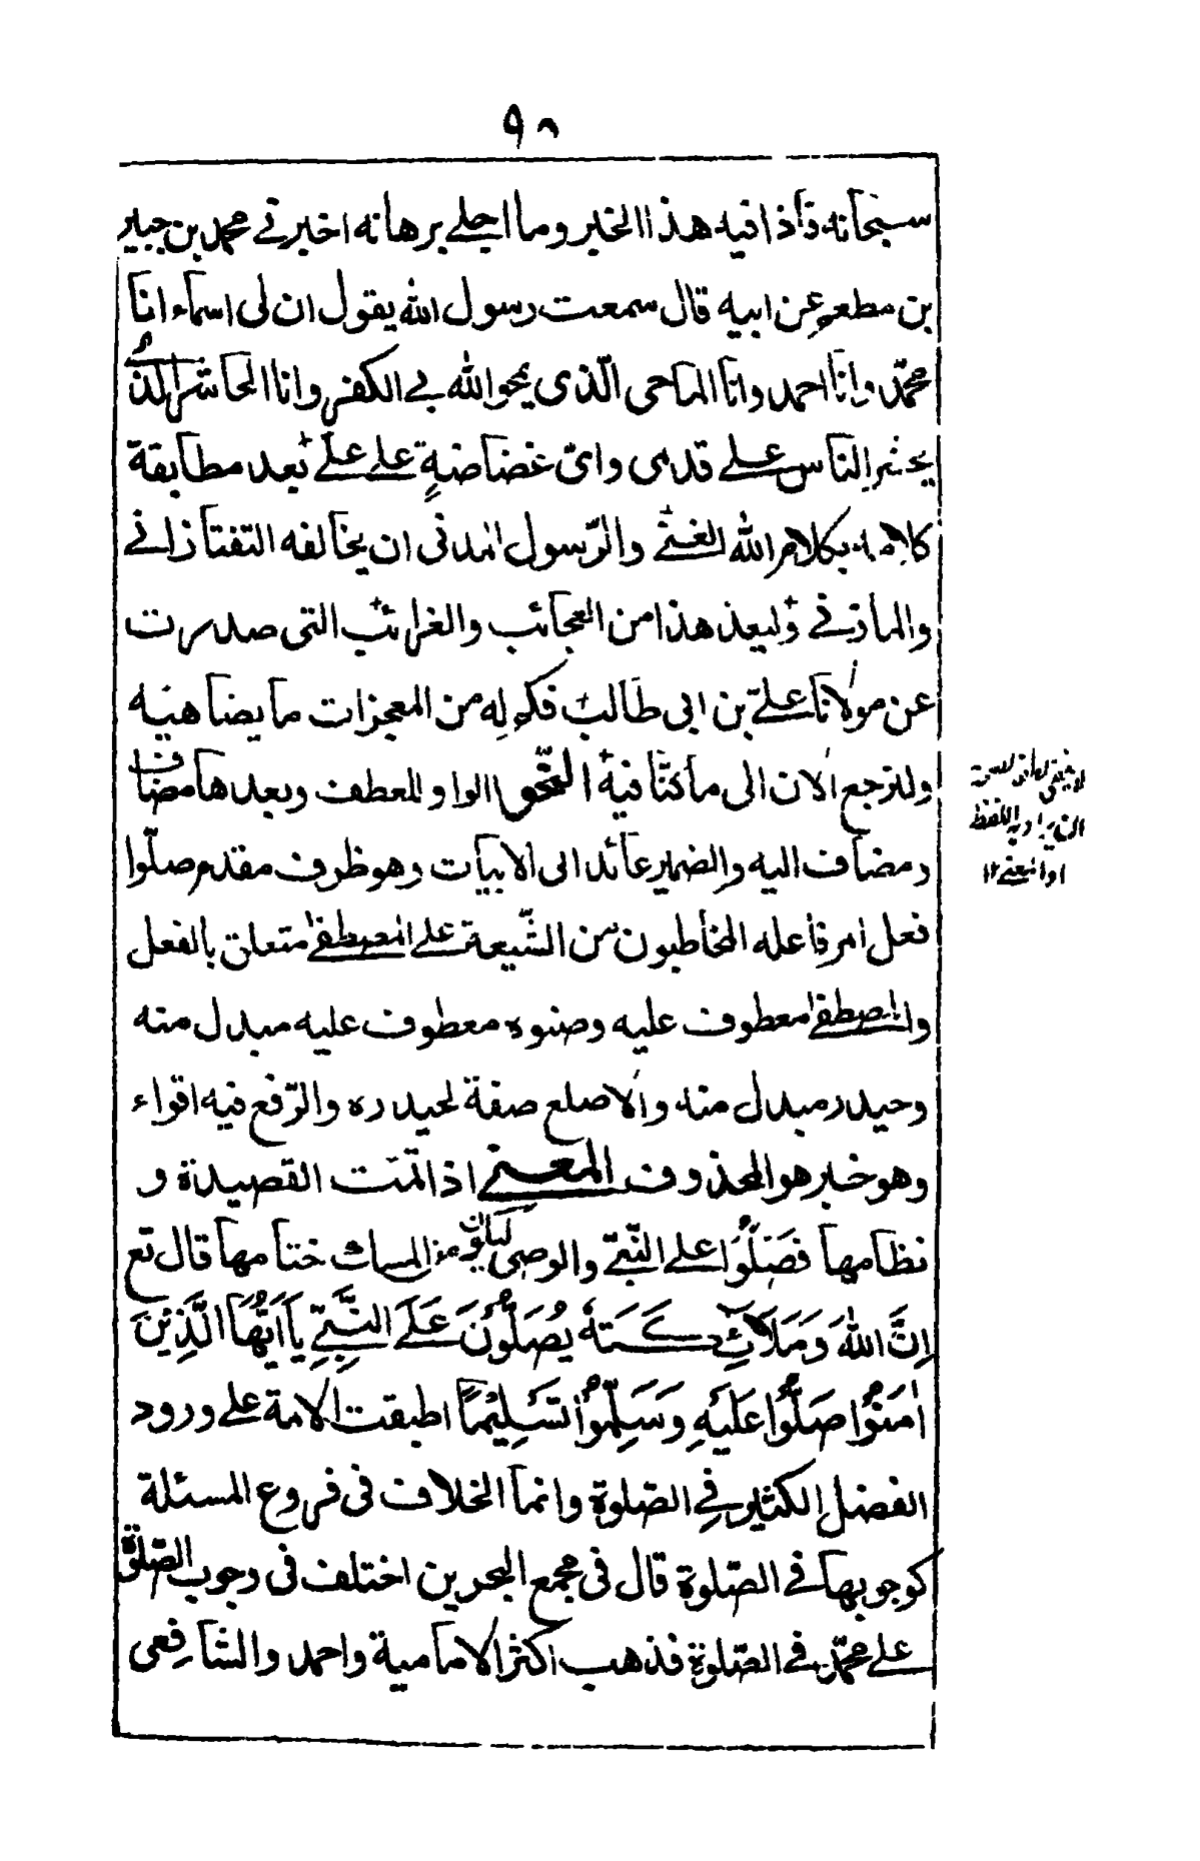 ٩٨
سبحانه فأذا فيه هذا الخبر وما اجلے برهانه اخبرنے محمد بن جبير
بن مطعم عن ابيه قال سمعت رسول الله يقول ان لى اسماء انا
محمّد وانا احمد وانا الماحى الّذى يمحو الله بے الكفر وانا الحاشر الذى
يحشر الناس علے قدمى واىّ غضاضةٍ علے علّے بعد مطابقة
كلامه بكلام الله الغنے والرّسول المدنى ان يخالفه التفتازانے
والمازنے وليعد هذا من العجائب والغرائب التى صدرت
عن مولانا علےّ بن ابى طالب فكم له من المعجزات ما يضاهيه
ولنرجع الان الى ما كنّا فيه النّحو الواو للعطف وبعدها مضاف
ومضاف اليه والضمير عائد الى الابيات وهو ظرف مقدم صلّوا
فعل امر فاعله المخاطبون من الشّيعة علے المصطفےٰ متعلق بالفعل
والمصطفےٰ معطوف عليه وصنوه معطوف عليه مبدل منه
وحيدر مبدل منه والاصلع صفة لحيدره والرّفع فيه اقواء
وهو خبر هو المحذوف المعنے اذا تمّت القصيدة و
نظامها فصَلّوا علے النّبےّ والوصى ليكون من المسك ختامها قال تع
اِنَّ اللهَ وَمَلَائِكَتَهٗ يُصَلُّوْنَ عَلَے النَّبِےِّ يَا اَيُّهَا الَّذِيْنَ
اٰمَنُوْا صَلُّوْا عَلَيْهِ وَسَلِّمُوْا تَسْلِيْمًا اطبقت الامة علے ورود
الفضل الكثير فے الصّلوة وانما الخلاف فى فروع المسئلة
كوجوبها فے الصّلوة قال فى مجمع البحرين اختلف فى وجوب الصّلوة
علے محمّد فے الصّلوة فذهب اكثر الامامية واحمد والشافعى